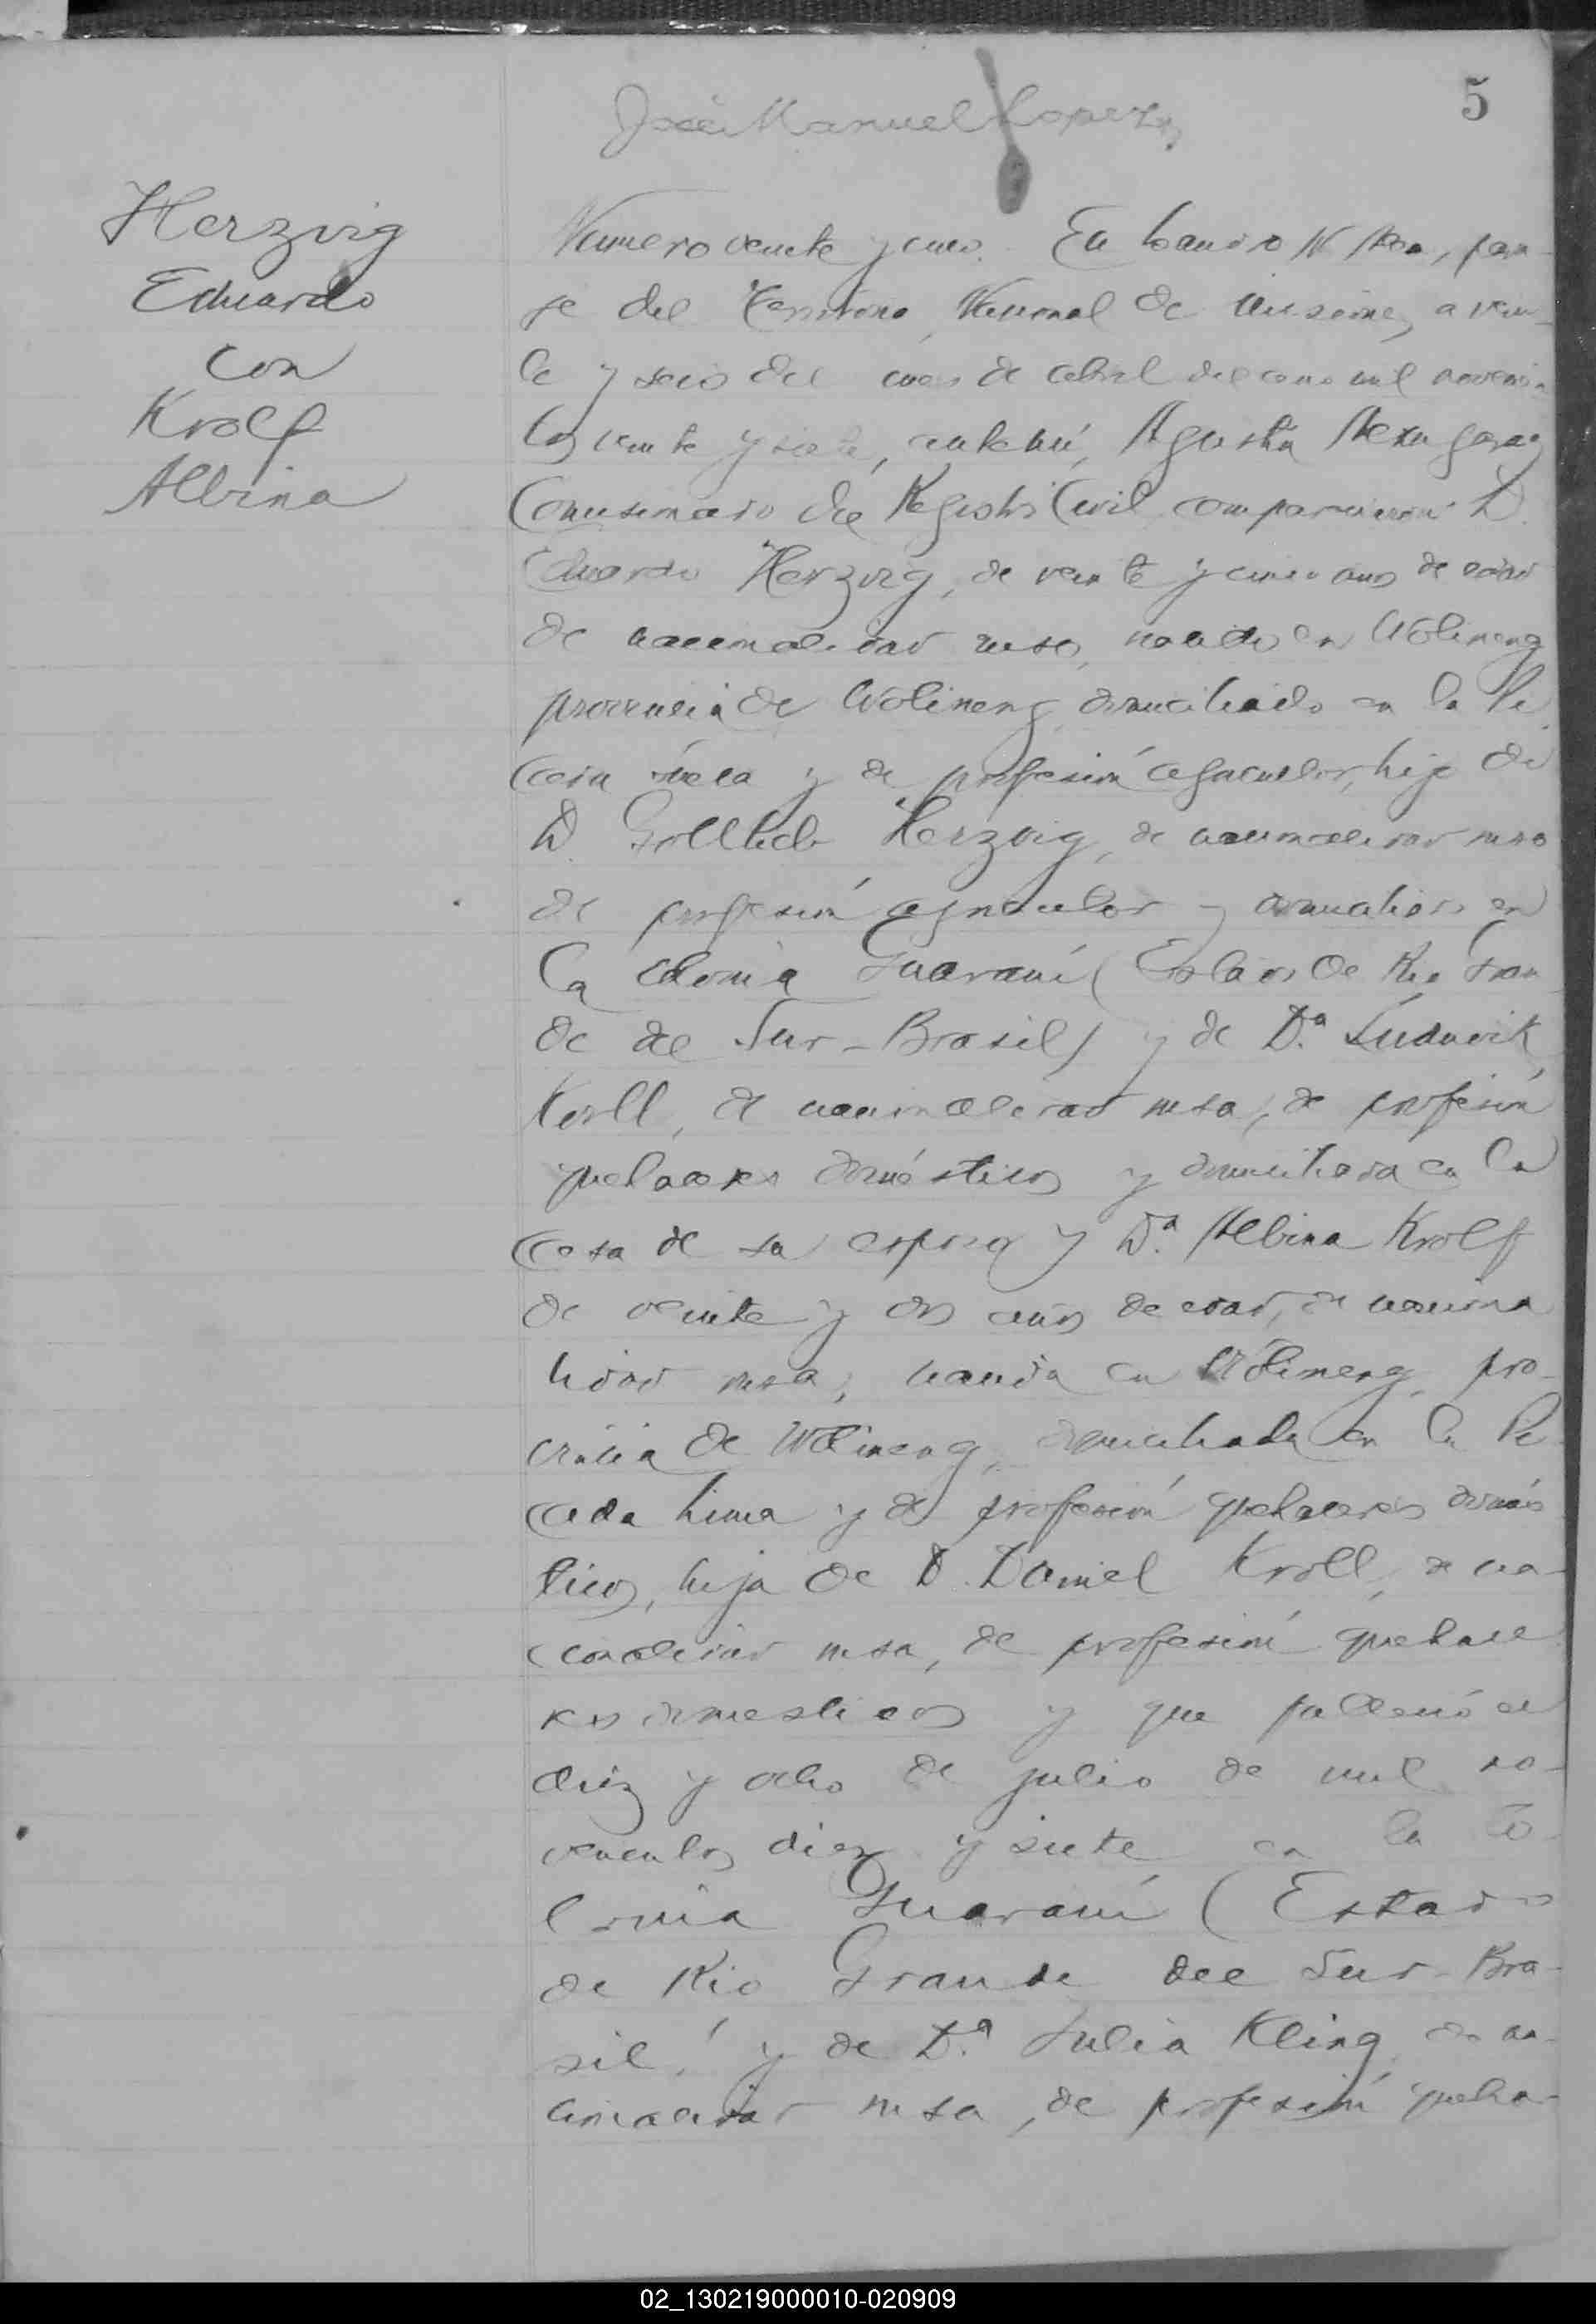 5
José Manuel Lopez
Herzvig
Eduardo
con
Krolf
Albina
Numero veinte y cinco. En N Alem, para-
je del Territorio Nacional de Misiones, a vein-
te y seis del mes de abril del año mil novecien-
tos veinte y siete, ante mí, Agustin
Comisionado del Registro Civil comparecieron D.
Eduardo Herzvig, de veinte y cinco años de edad
de nacionalidad rusa, nacido en Wolineng
provincia de Wolineng domiciliado en la Pi
cada y de profesión agricultor, hijo de
D. Gottlieb Herzvig, de nacionalidad rusa
de profesión agricultor y domiciliado en
la Colonia Guaraní (Estado de Rio Gran
de del Sur-Brasil) y de Dª Ludovik
Kroll, de nacionalidad rusa, de profesión
quehaceres domésticos y domiciliada en la
casa de su esposo y Dª Albina Krolf
de veinte y dos años de edad, de naciona
lidad rusa, nacida en Wolineng, pro-
vincia de Wolineng, domiciliada en la Pi
cada Lima y de profesión quehaceres domés
ticos, hija de D. Daniel Kroll, de na-
cionalidad rusa, de profesión quehace
res domesticos y que falleció el
diez y ocho de julio de mil no-
vecientos diez y siete en la Co-
lonia Guaraní (Estado
de Rio Grande del Sur-Bra-
sil) y de Dª Julia Kling de na-
cionalidad rusa, de profesión queha-
02_130219000010-020909